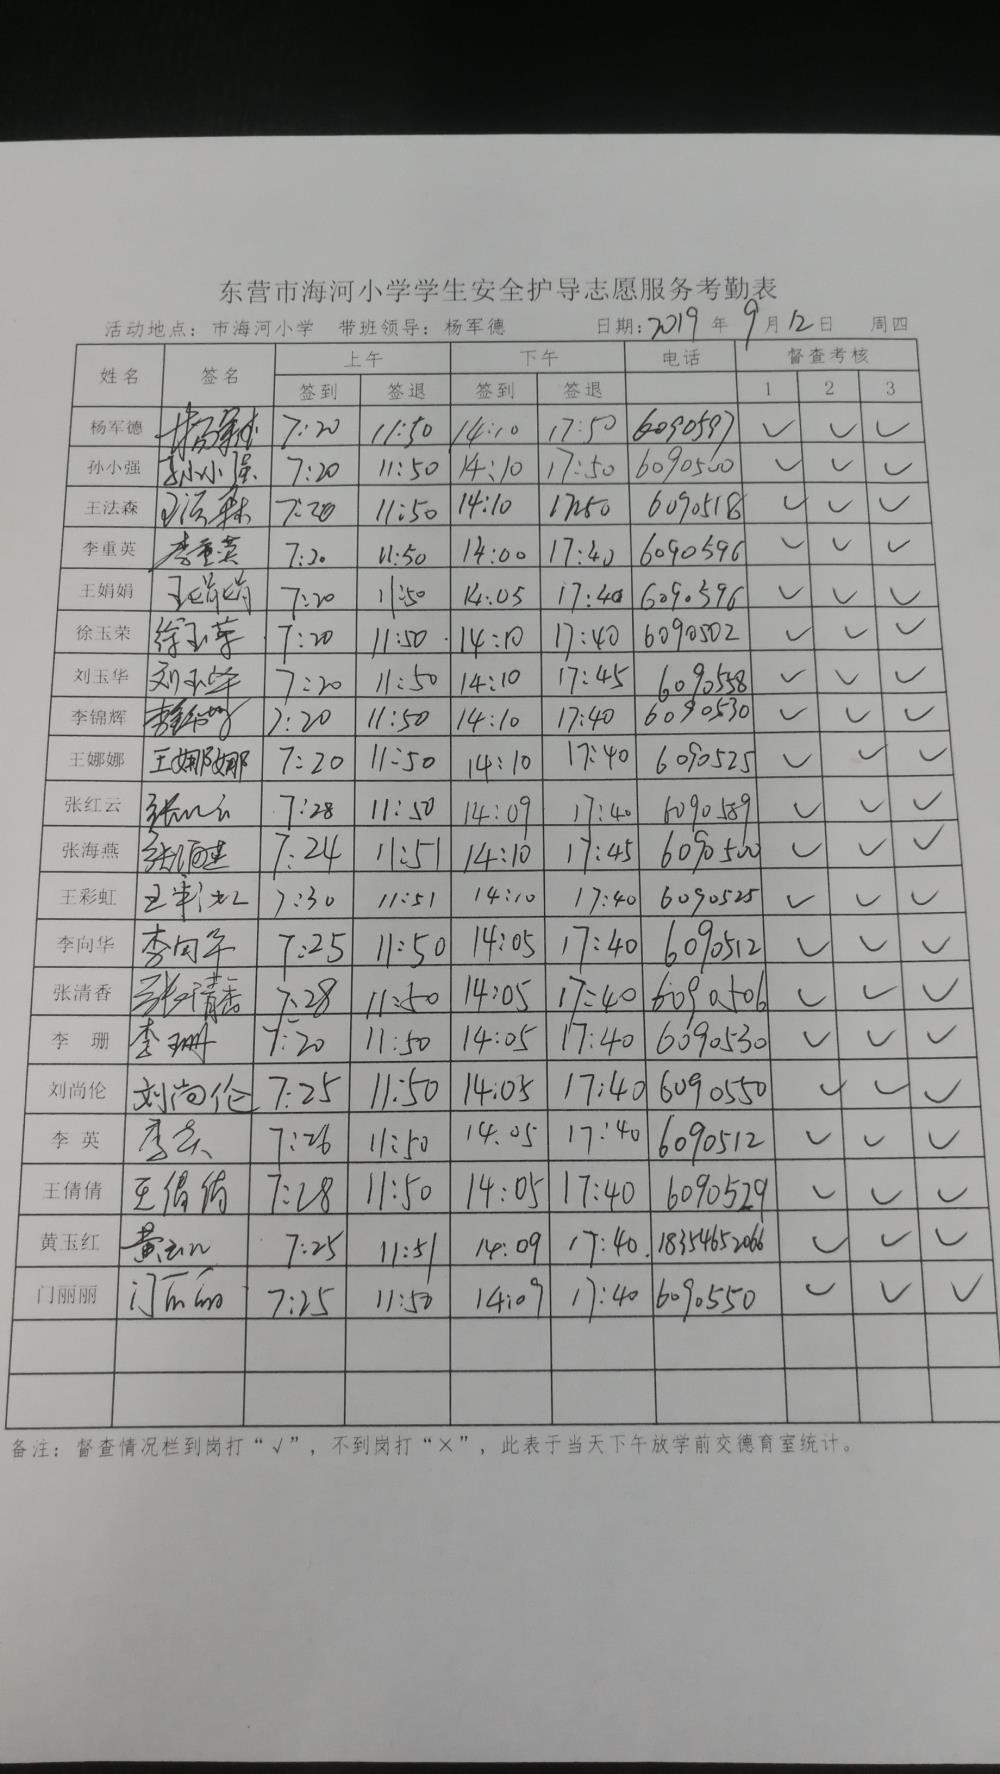 东营市海河小学学生安全护导志愿服务考勤表
活动地点：市海河小学 带班领导：杨军德 日期：2019 年 9 月 12 日 周四
姓名 签名 上午 下午 电话 督查考核
签到 签退 签到 签退 1 2 3
杨军德 杨军德 7:20 11:50 14:10 17:50 6090597 ✓ ✓ ✓
孙小强 孙小强 7:20 11:50 14:10 17:50 6090500 ✓ ✓ ✓
王法森 王法森 7:20 11:50 14:10 17:50 6090518 ✓ ✓ ✓
李重英 李重英 7:20 11:50 14:00 17:40 6090596 ✓ ✓ ✓
王娟娟 王娟娟 7:20 11:50 14:05 17:40 6090596 ✓ ✓ ✓
徐玉荣 徐玉荣 7:20 11:50 14:10 17:40 6090502 ✓ ✓ ✓
刘玉华 刘玉华 7:20 11:50 14:10 17:45 6090558 ✓ ✓ ✓
李锦辉 李锦辉 7:20 11:50 14:10 17:40 6090530 ✓ ✓ ✓
王娜娜 王娜娜 7:20 11:50 14:10 17:40 6090525 ✓ ✓ ✓
张红云 张红云 7:28 11:50 14:09 17:40 6090589 ✓ ✓ ✓
张海燕 张海燕 7:24 11:51 14:10 17:45 6090500 ✓ ✓ ✓
王彩虹 王彩虹 7:30 11:51 14:10 17:40 6090525 ✓ ✓ ✓
李向华 李向华 7:25 11:50 14:05 17:40 6090512 ✓ ✓ ✓
张清香 张清香 7:28 11:50 14:05 17:40 6090506 ✓ ✓ ✓
李 珊 李珊 7:20 11:50 14:05 17:40 6090530 ✓ ✓ ✓
刘尚伦 刘尚伦 7:25 11:50 14:05 17:40 6090550 ✓ ✓ ✓
李 英 李英 7:26 11:50 14:05 17:40 6090512 ✓ ✓ ✓
王倩倩 王倩倩 7:28 11:50 14:05 17:40 6090529 ✓ ✓ ✓
黄玉红 黄玉红 7:25 11:51 14:09 17:40 18354652066 ✓ ✓ ✓
门丽丽 门丽丽 7:25 11:50 14:09 17:40 6090550 ✓ ✓ ✓
备注：督查情况栏到岗打“√”，不到岗打“×”，此表于当天下午放学前交德育室统计。